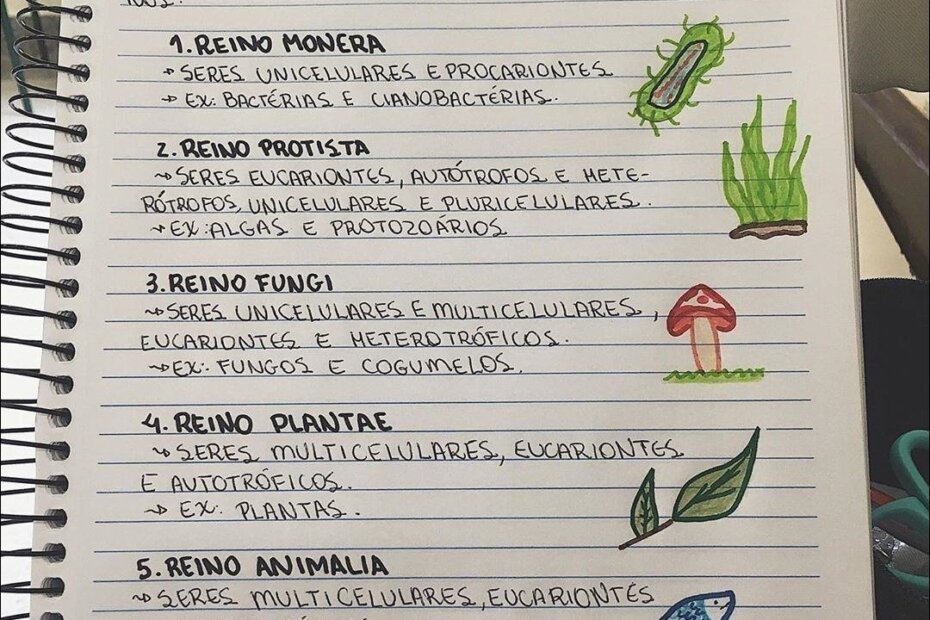 1. REINO MONERA
→ SERES UNICELULARES E PROCARIONTES
→ EX: BACTÉRIAS E CIANOBACTÉRIAS.
2. REINO PROTISTA
↝ SERES EUCARIONTES, AUTÓTROFOS E HETE-
RÓTROFOS, UNICELULARES E PLURICELULARES.
↝ EX: ALGAS E PROTOZOÁRIOS
3. REINO FUNGI
↝ SERES UNICELULARES E MULTICELULARES,
EUCARIONTES E HETEROTRÓFICOS.
↝ EX: FUNGOS E COGUMELOS.
4. REINO PLANTAE
↝ SERES MULTICELULARES, EUCARIONTES
E AUTOTRÓFICOS.
↝ EX: PLANTAS.
5. REINO ANIMALIA
↝ SERES MULTICELULARES, EUCARIONTES